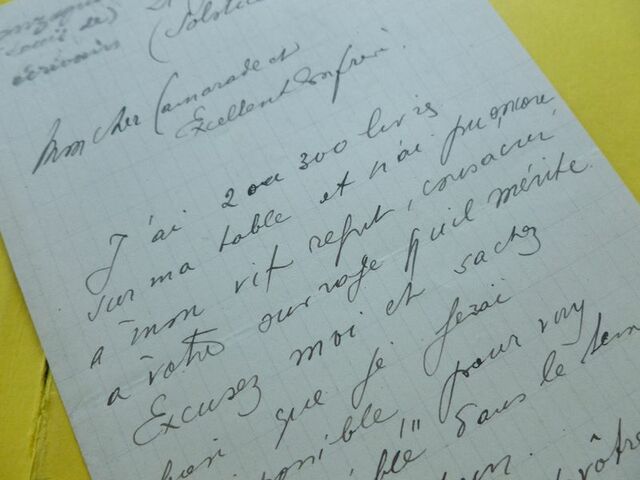 (Solstic
écrivains
Mon cher Camarade et
Excellent Confrère.
J'ai 2 ou 300 livres
sur ma table et n'ai pu, encore
à mon vif regret, consacrer,
à votre ouvrage qu'il mérite.
Excusez moi et sachez
que je ferai
possible pour vous
!!! dans le tem
vôtre